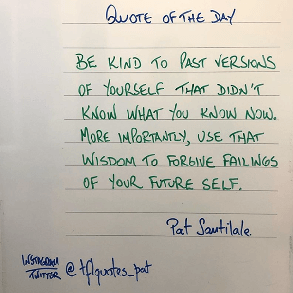 QUOTE OF THE DAY
BE KIND TO PAST VERSIONS
OF YOURSELF THAT DIDN'T
KNOW WHAT YOU KNOW NOW.
MORE IMPORTANTLY, USE THAT
WISDOM TO FORGIVE FAILINGS
OF YOUR FUTURE SELF.
Pat
INSTAGRAM
TWITTER @tflquotes_pat